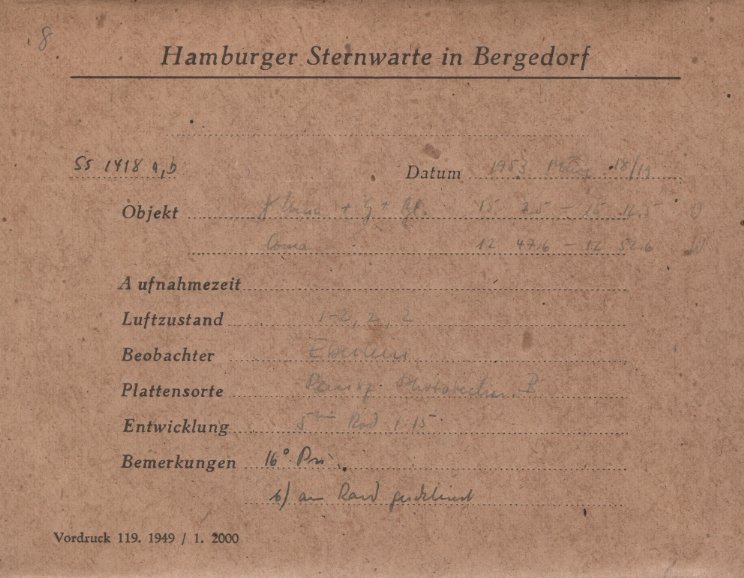 8
Hamburger Sternwarte in Bergedorf
SS 1418 a,b
Datum 1953 März 18/19
Objekt + G + 15 2.5 – 15 12.5
Coma 12 47.6 – 12 52.6
Aufnahmezeit
Luftzustand 1-2, 2, 2
Beobachter
Plattensorte B
Entwicklung 5 min Rod 1:15
Bemerkungen 16° Pri.
b) am Rand
Vordruck 119. 1949 / 1. 2000